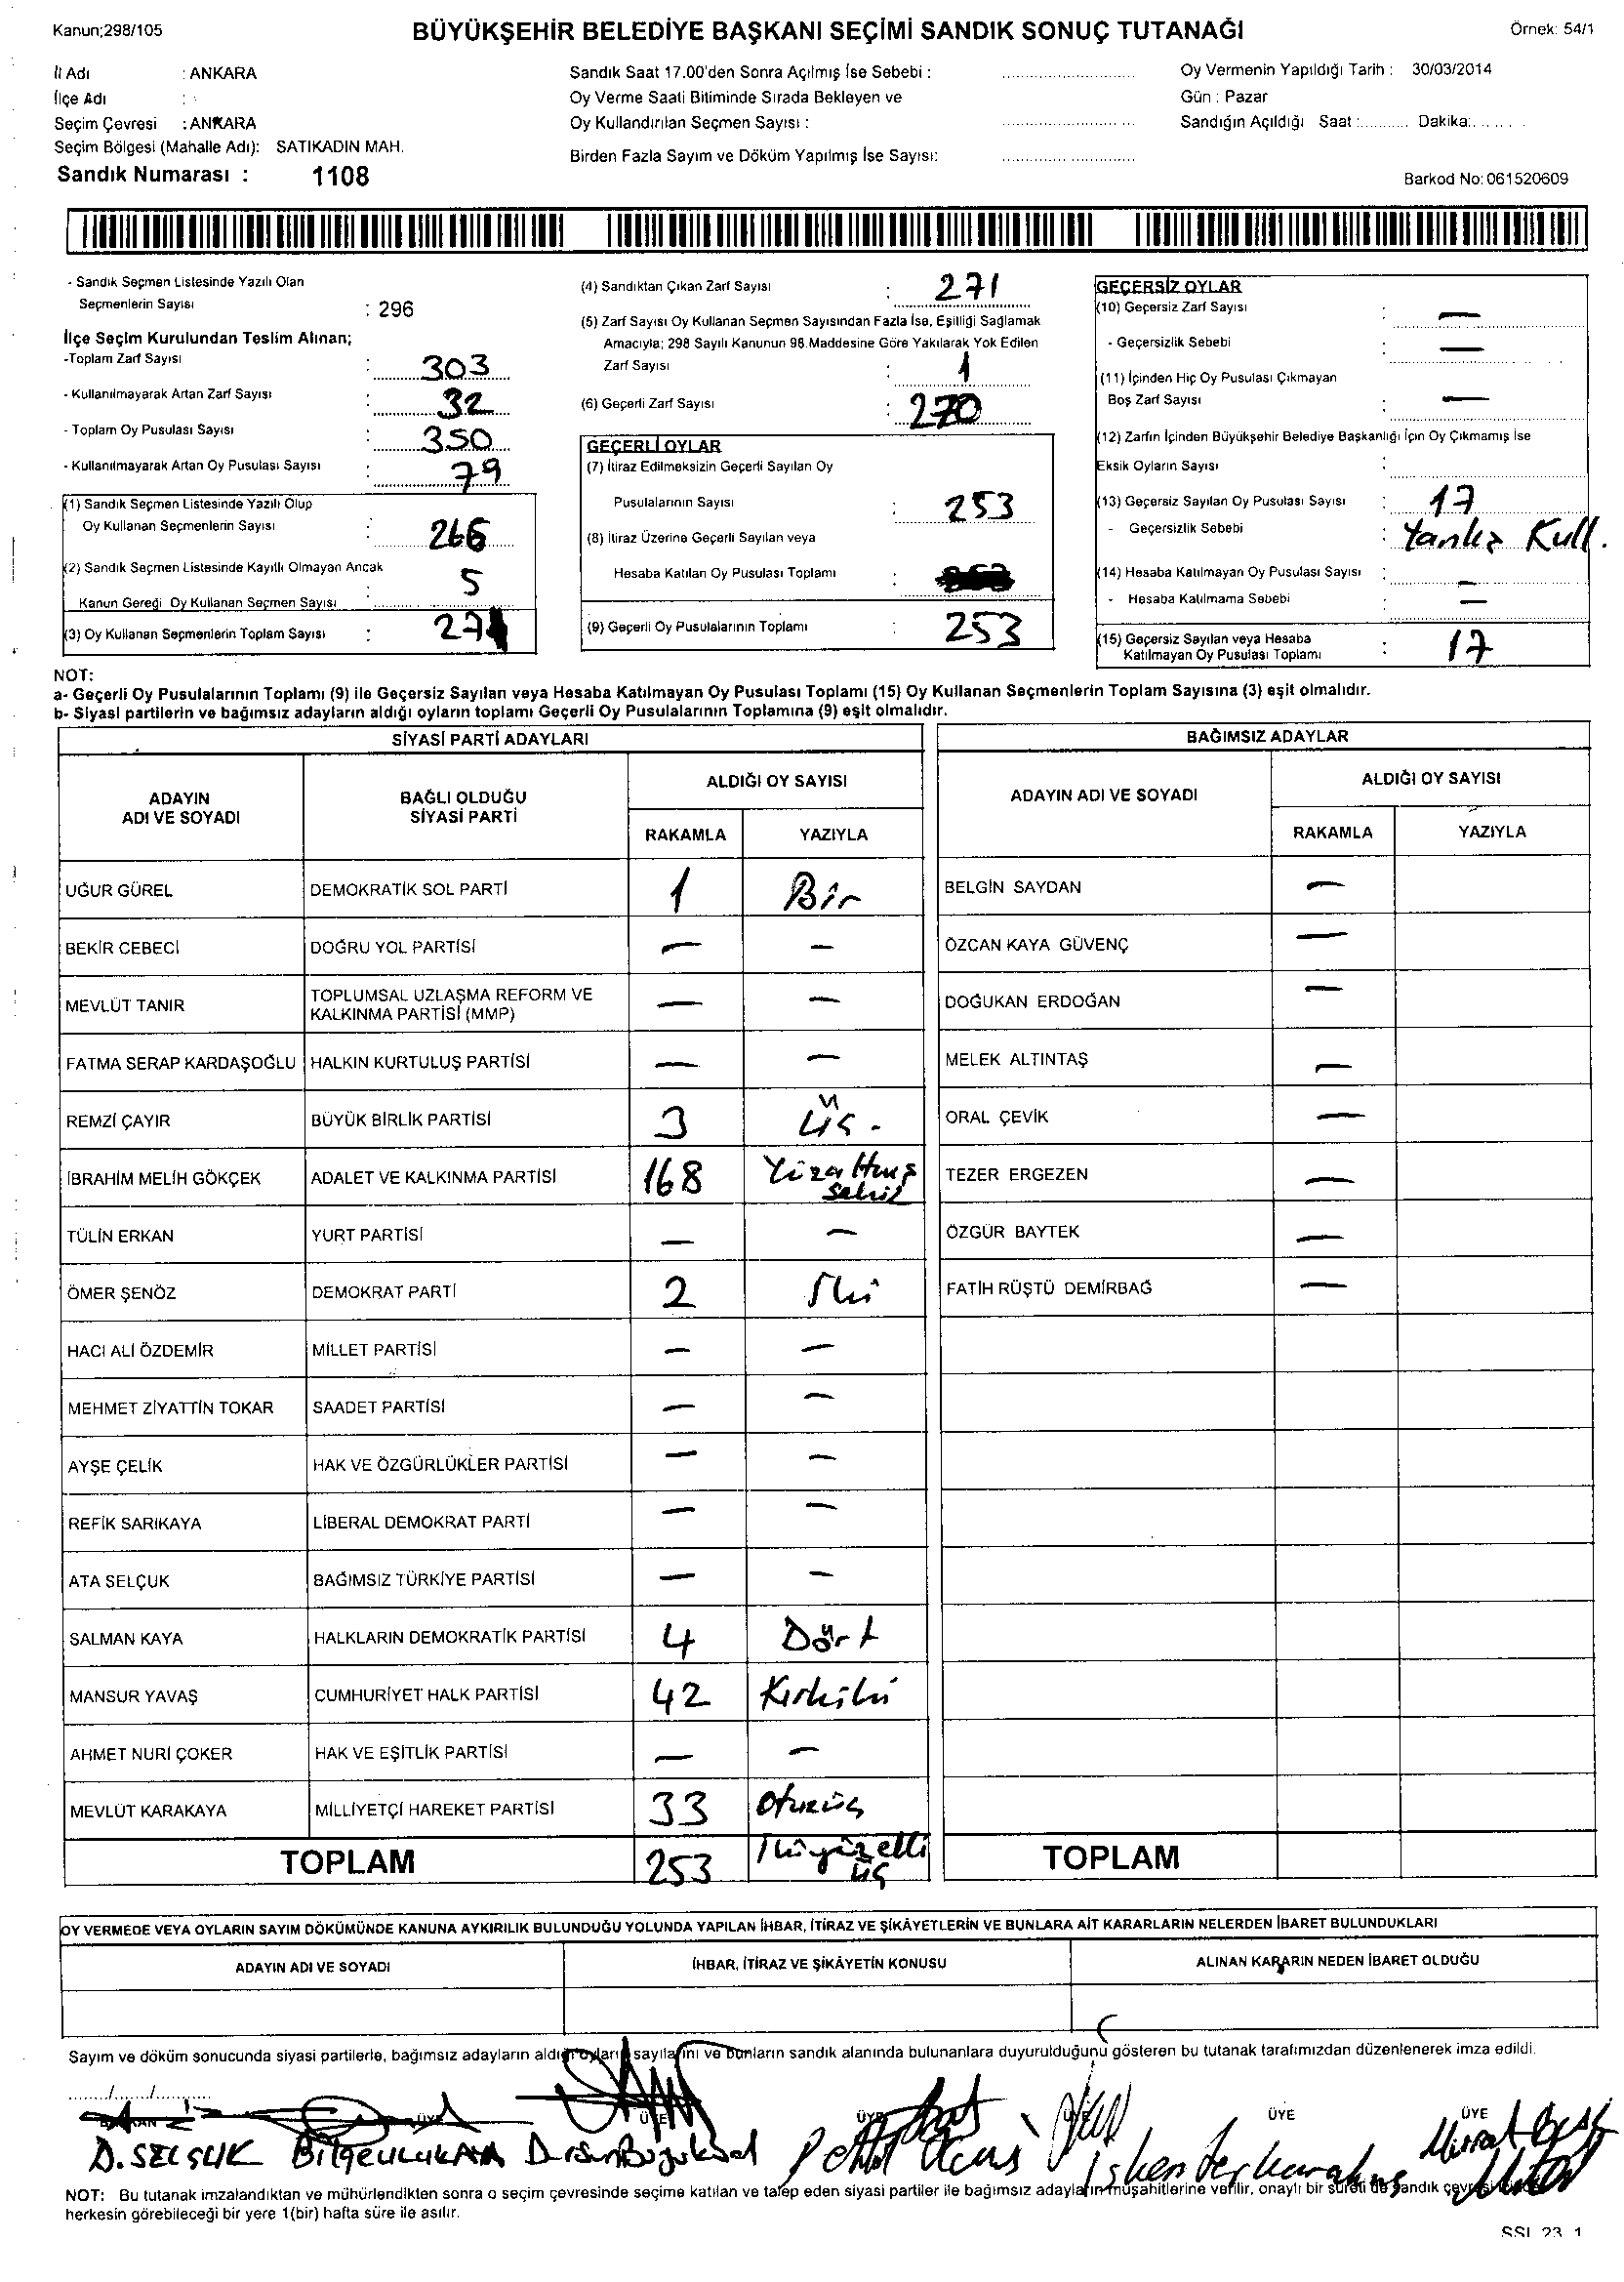 Kanun;298/105
BÜYÜKŞEHİR BELEDİYE BAŞKANI SEÇİMİ SANDIK SONUÇ TUTANAĞI
Örnek: 54/1
İl Adı : ANKARA
İlçe Adı :
Seçim Çevresi : ANKARA
Seçim Bölgesi (Mahalle Adı): SATIKADIN MAH.
Sandık Numarası : 1108
Sandık Saat 17.00'den Sonra Açılmış İse Sebebi :
Oy Verme Saati Bitiminde Sırada Bekleyen ve
Oy Kullandırılan Seçmen Sayısı :
Birden Fazla Sayım ve Döküm Yapılmış İse Sayısı:
Oy Vermenin Yapıldığı Tarih : 30/03/2014
Gün : Pazar
Sandığın Açıldığı Saat :.......... Dakika:.......
Barkod No: 061520609
- Sandık Seçmen Listesinde Yazılı Olan
Seçmenlerin Sayısı : 296
İlçe Seçim Kurulundan Teslim Alınan;
-Toplam Zarf Sayısı : 303
- Kullanılmayarak Artan Zarf Sayısı : 32
- Toplam Oy Pusulası Sayısı : 350
- Kullanılmayarak Artan Oy Pusulası Sayısı : 79
(1) Sandık Seçmen Listesinde Yazılı Olup
Oy Kullanan Seçmenlerin Sayısı : 266
(2) Sandık Seçmen Listesinde Kayıtlı Olmayan Ancak
Kanun Gereği Oy Kullanan Seçmen Sayısı : 5
(3) Oy Kullanan Seçmenlerin Toplam Sayısı :
(4) Sandıktan Çıkan Zarf Sayısı : 271
(5) Zarf Sayısı Oy Kullanan Seçmen Sayısından Fazla İse, Eşitliği Sağlamak
Amacıyla; 298 Sayılı Kanunun 98.Maddesine Göre Yakılarak Yok Edilen
Zarf Sayısı : 1
(6) Geçerli Zarf Sayısı : 270
GEÇERLİ OYLAR
(7) İtiraz Edilmeksizin Geçerli Sayılan Oy
Pusulalarının Sayısı : 253
(8) İtiraz Üzerine Geçerli Sayılan veya
Hesaba Katılan Oy Pusulası Toplamı :
(9) Geçerli Oy Pusulalarının Toplamı : 253
GEÇERSİZ OYLAR
(10) Geçersiz Zarf Sayısı : —
- Geçersizlik Sebebi : —
(11) İçinden Hiç Oy Pusulası Çıkmayan
Boş Zarf Sayısı : —
(12) Zarfın İçinden Büyükşehir Belediye Başkanlığı İçin Oy Çıkmamış İse
Eksik Oyların Sayısı :
(13) Geçersiz Sayılan Oy Pusulası Sayısı : 17
- Geçersizlik Sebebi : Yanlış Kull.
(14) Hesaba Katılmayan Oy Pusulası Sayısı : —
- Hesaba Katılmama Sebebi : —
(15) Geçersiz Sayılan veya Hesaba
Katılmayan Oy Pusulası Toplamı : 17
NOT:
a- Geçerli Oy Pusulalarının Toplamı (9) ile Geçersiz Sayılan veya Hesaba Katılmayan Oy Pusulası Toplamı (15) Oy Kullanan Seçmenlerin Toplam Sayısına (3) eşit olmalıdır.
b- Siyasi partilerin ve bağımsız adayların aldığı oyların toplamı Geçerli Oy Pusulalarının Toplamına (9) eşit olmalıdır.
SİYASİ PARTİ ADAYLARI
ADAYIN ADI VE SOYADI
BAĞLI OLDUĞU SİYASİ PARTİ
ALDIĞI OY SAYISI
RAKAMLA YAZIYLA
UĞUR GÜREL DEMOKRATİK SOL PARTİ 1 Bir
BEKİR CEBECİ DOĞRU YOL PARTİSİ — —
MEVLÜT TANIR TOPLUMSAL UZLAŞMA REFORM VE KALKINMA PARTİSİ (MMP) — —
FATMA SERAP KARDAŞOĞLU HALKIN KURTULUŞ PARTİSİ — —
REMZİ ÇAYIR BÜYÜK BİRLİK PARTİSİ 3 Üç -
İBRAHİM MELİH GÖKÇEK ADALET VE KALKINMA PARTİSİ 168
TÜLİN ERKAN YURT PARTİSİ — —
ÖMER ŞENÖZ DEMOKRAT PARTİ 2 İki
HACI ALİ ÖZDEMİR MİLLET PARTİSİ — —
MEHMET ZİYATTİN TOKAR SAADET PARTİSİ — —
AYŞE ÇELİK HAK VE ÖZGÜRLÜKLER PARTİSİ — —
REFİK SARIKAYA LİBERAL DEMOKRAT PARTİ — —
ATA SELÇUK BAĞIMSIZ TÜRKİYE PARTİSİ — —
SALMAN KAYA HALKLARIN DEMOKRATİK PARTİSİ 4 Dört
MANSUR YAVAŞ CUMHURİYET HALK PARTİSİ 42 Kırkiki
AHMET NURİ ÇOKER HAK VE EŞİTLİK PARTİSİ — —
MEVLÜT KARAKAYA MİLLİYETÇİ HAREKET PARTİSİ 33 Otuzüç
TOPLAM 253 İkiyüzelli üç
BAĞIMSIZ ADAYLAR
ADAYIN ADI VE SOYADI
ALDIĞI OY SAYISI
RAKAMLA YAZIYLA
BELGİN SAYDAN —
ÖZCAN KAYA GÜVENÇ —
DOĞUKAN ERDOĞAN —
MELEK ALTINTAŞ —
ORAL ÇEVİK —
TEZER ERGEZEN —
ÖZGÜR BAYTEK —
FATİH RÜŞTÜ DEMİRBAĞ —
TOPLAM
OY VERMEDE VEYA OYLARIN SAYIM DÖKÜMÜNDE KANUNA AYKIRILIK BULUNDUĞU YOLUNDA YAPILAN İHBAR, İTİRAZ VE ŞİKÂYETLERİN VE BUNLARA AİT KARARLARIN NELERDEN İBARET BULUNDUKLARI
ADAYIN ADI VE SOYADI
İHBAR, İTİRAZ VE ŞİKÂYETİN KONUSU
ALINAN KARARIN NEDEN İBARET OLDUĞU
Sayım ve döküm sonucunda siyasi partilerle, bağımsız adayların aldığı oyların sayılarını ve bunların sandık alanında bulunanlara duyurulduğunu gösteren bu tutanak tarafımızdan düzenlenerek imza edildi.
....../....../..........
ÜYE ÜYE ÜYE ÜYE ÜYE ÜYE
D. SELÇUK
NOT: Bu tutanak imzalandıktan ve mühürlendikten sonra o seçim çevresinde seçime katılan ve talep eden siyasi partiler ile bağımsız adayların müşahitlerine verilir, onaylı bir sureti de sandık
herkesin görebileceği bir yere 1(bir) hafta süre ile asılır.